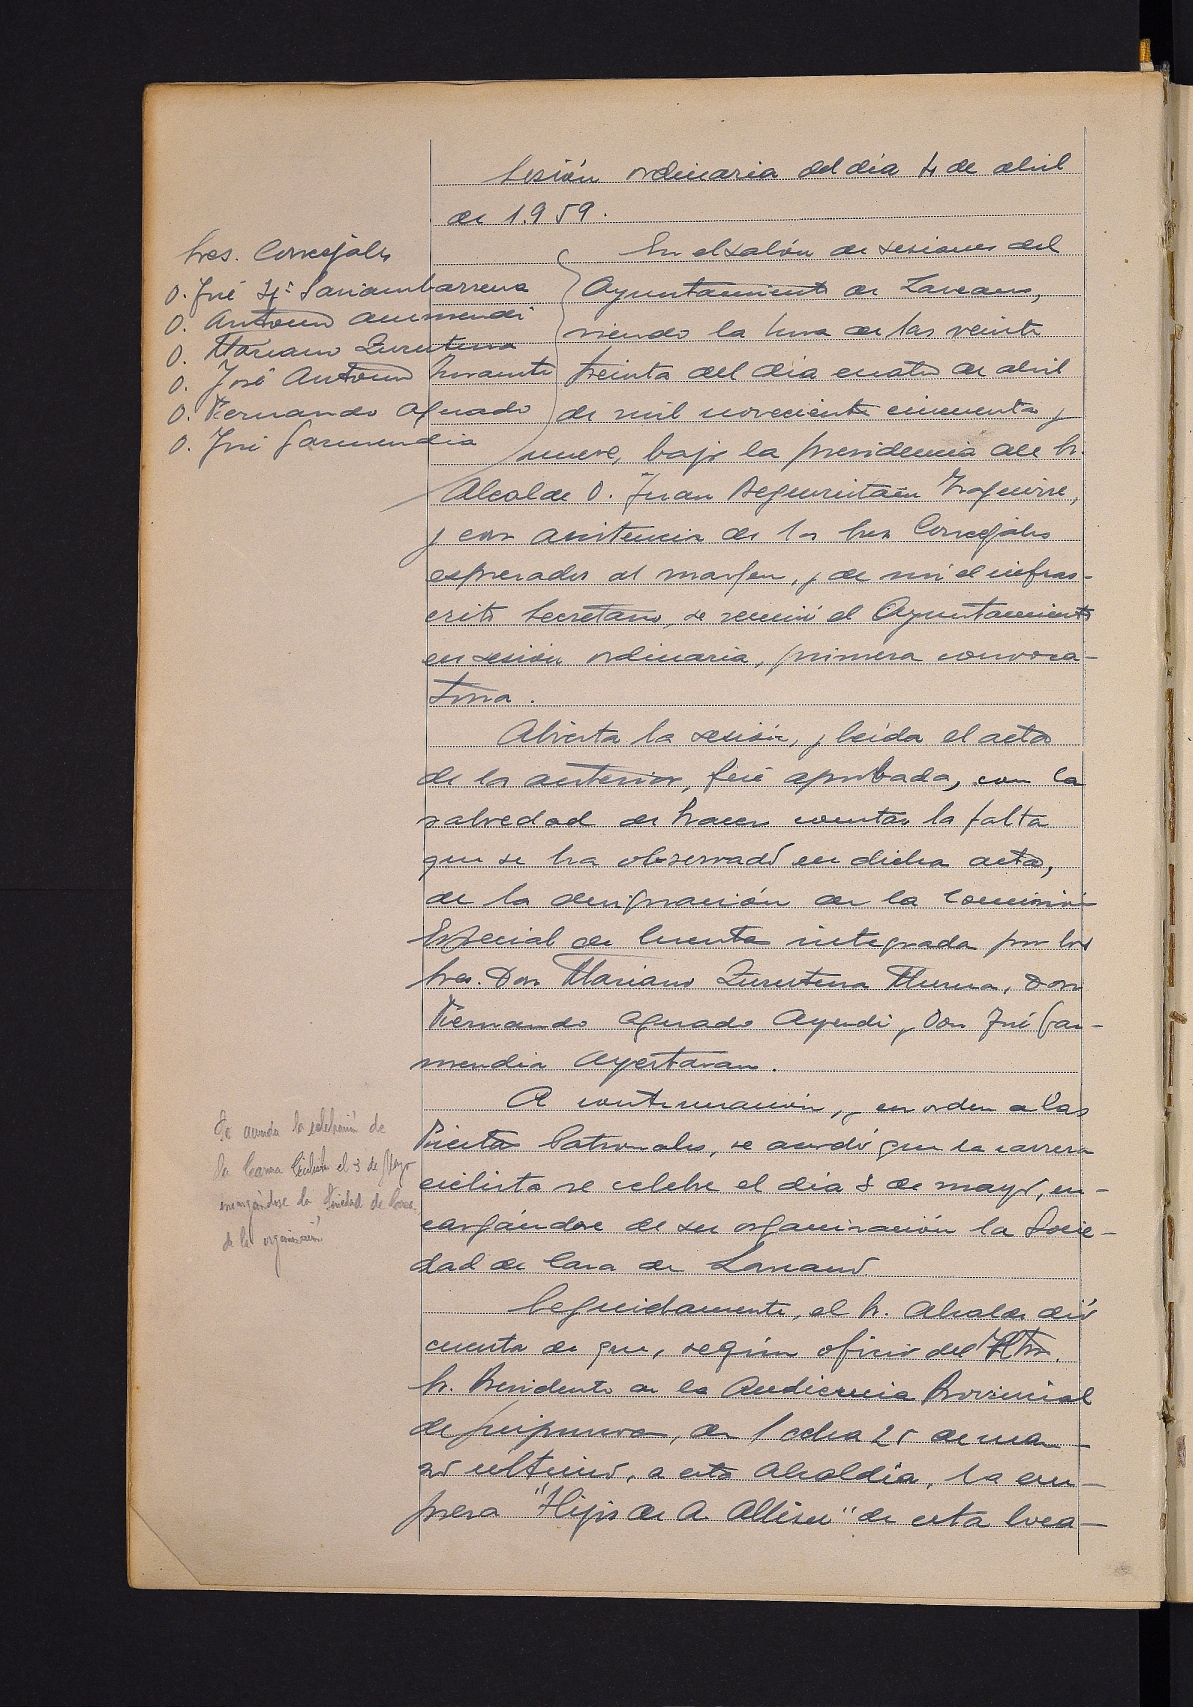 Sesión ordinaria del día 4 de abril
de 1.959.
Sres. Concejales
D. José Mª Sariambarrena
D. Antonio Aurmendi
D. Mariano Zurutuza
D. José Antonio
D. Fernando Aguado
D. José Garmendia
En el salón de sesiones del
Ayuntamiento de Lazcano,
siendo la hora de las veinte
treinta del día cuatro de abril
de mil novecientos cincuenta y
nueve, bajo la presidencia del Sr.
Alcalde D. Juan Izaguirre,
y con asistencia de los Sres Concejales
expresados al margen, y de mí el infras-
crito Secretario, se reunió el Ayuntamiento
en sesión ordinaria, primera convoca-
toria.
Abierta la sesión, y leída el acta
de la anterior, fué aprobada, con la
salvedad de hacer constar la falta
que se ha observado en dicha acta,
de la designación de la Comisión
Especial de Cuentas integrada por los
Sres. Don Mariano Zurutuza Munoa, Don
Fernando Aguado Ayerdi y Don José Gar-
mendia Ayestaran.
A continuación, y en orden a las
Fiestas Patronales, se acordó que la carrera
ciclista se celebre el día 3 de mayo, en-
cargándose de su organización la Socie-
dad de Caza de Lazcano.
Se acuerda la celebración de
la Carrera Ciclista el 3 de Mayo
encargándose la Sociedad de Caza
de la organización
Seguidamente, el Sr. Alcalde dió
cuenta de que, según oficio del Iltmo.
Sr. Presidente de la Audiencia Provincial
de Guipuzcoa, de fecha 25 de mar-
zo último, a esta Alcaldía, la em-
presa "Hijos de A. Albisu" de esta loca-